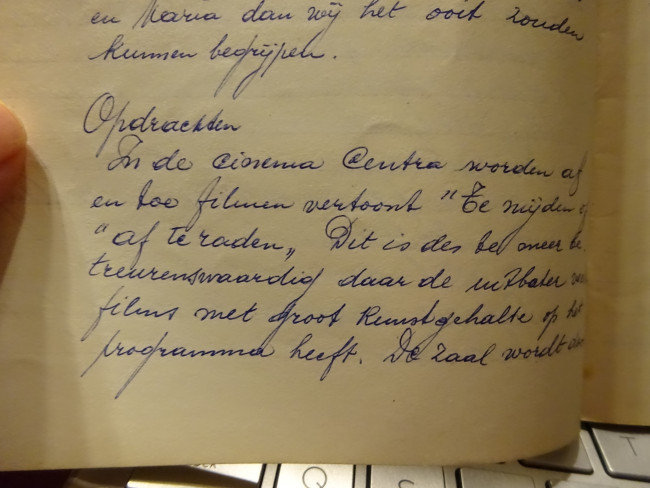 en Maria dan wij het ooit zouden
kunnen begrijpen.
Opdrachten
In de cinema Centra worden af
en toe filmen vertoont "Te mijden of
"af te raden„ Dit is des te meer be-
treurenswaardig daar de uitbater
films met groot kunstgehalte op het
programma heeft. De zaal wordt
Q
T